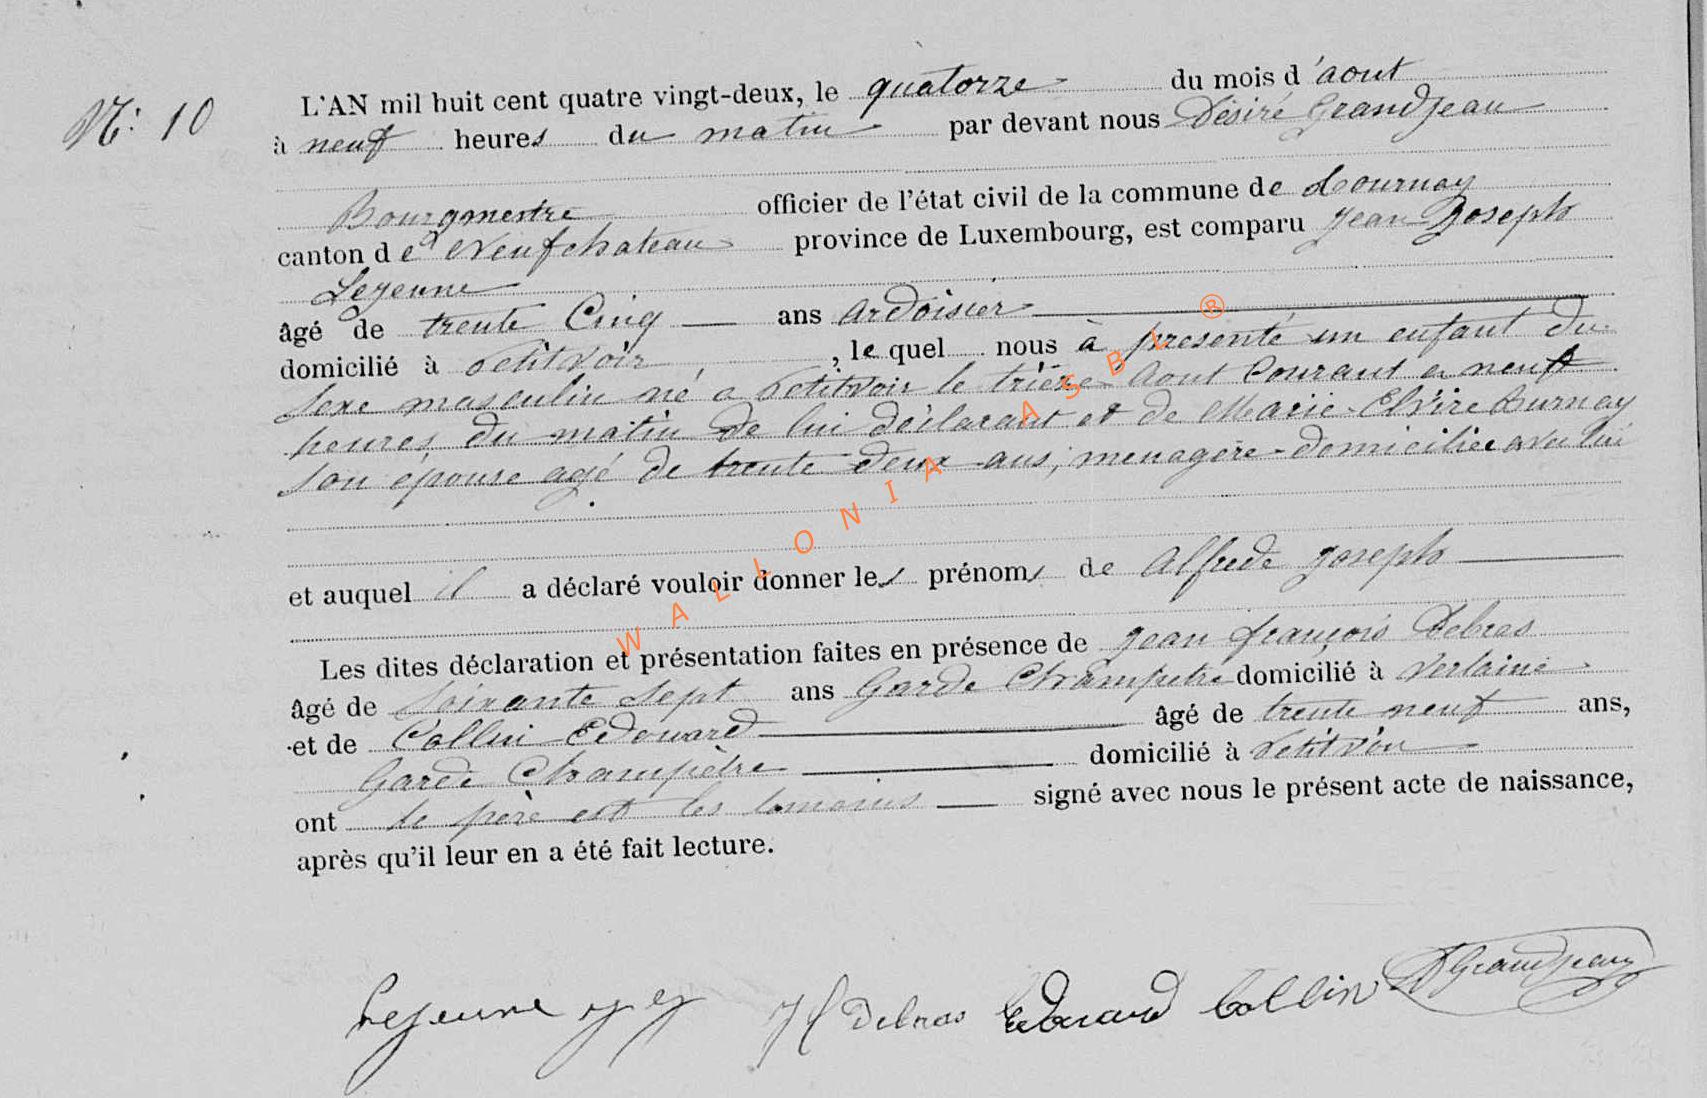 N: 10
L'AN mil huit cent quatre vingt-deux, le quatorze du mois d'aout
à neuf heures du matin par devant nous Désiré Grandjean
Bourgmestre officier de l'état civil de la commune de Tournay
canton de Neufchateau province de Luxembourg, est comparu Jean Joseph
Lejeune
âgé de trente Cinq ans Ardoisier
domicilié à Petitvoir, le quel nous à presenté un enfant du
sexe masculin né a Petitvoir le Aout Courant a neuf
heures du matin de lui déclarant et de Marie Elvire Burnay
son épouse agé de trente deux ans, menagère domiciliée avec lui
et auquel il a déclaré vouloir donner les prénoms de Alfrede Joseph
Les dites déclaration et présentation faites en présence de Jean françois Debras
âgé de soixante sept ans Garde Champetre domicilié à Verlaine
et de Collin Edouard âgé de trente neuf ans,
Garde Champètre domicilié à Petitvoir
ont le père est les temoins signé avec nous le présent acte de naissance,
après qu'il leur en a été fait lecture.
Lejeune JJ Debras Edouard Collin DGrandjean
WALLONIA ASBL ®